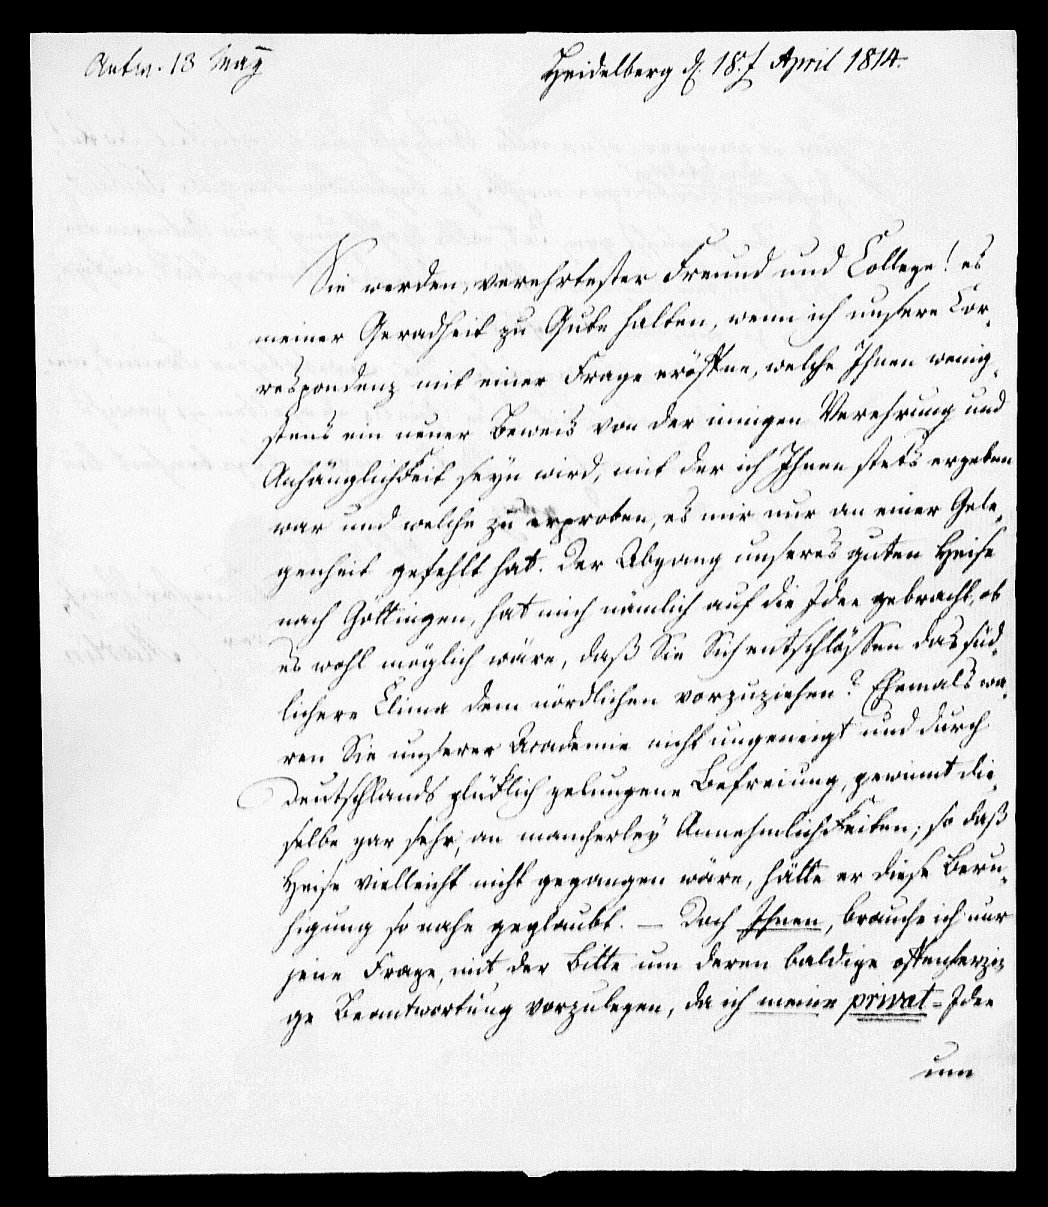 Antw. 13 May
Heidelberg d. 18. April 1814.
Sie werden, verehrtester Freund und College! es
meiner Geradheit zu Gute halten, wenn ich unsere Cor-
respondenz mit einer Frage eröffne, welche Ihnen wenig-
stens ein neuer Beweis von der innigen Verehrung und
Anhänglichkeit seyn wird, mit der ich Ihnen stets ergeben
war und welche zu erproben, es mir nur an einer Gele-
genheit gefehlt hat. Der Abgang unseres guten Heise
nach Göttingen, hat mich nämlich auf die Idee gebracht, ob
es wohl möglich wäre, daß Sie Sich entschlössen das süd-
lichere Clima dem nördlichen vorzuziehen? Ehemals wa-
ren Sie unserer Academie nicht ungeneigt und durch
Deutschlands glücklich gelungene Befreiung, gewinnt die-
selbe gar sehr, an mancherley Annehmlichkeiten; so daß
Heise vielleicht nicht gegangen wäre, hätte er diese Beru-
higung so nahe geglaubt. — Doch Ihnen, brauche ich nur
jene Frage, mit der Bitte um deren baldige offenherzi-
ge Beantwortung vorzulegen, da ich meine privat-Idee
um